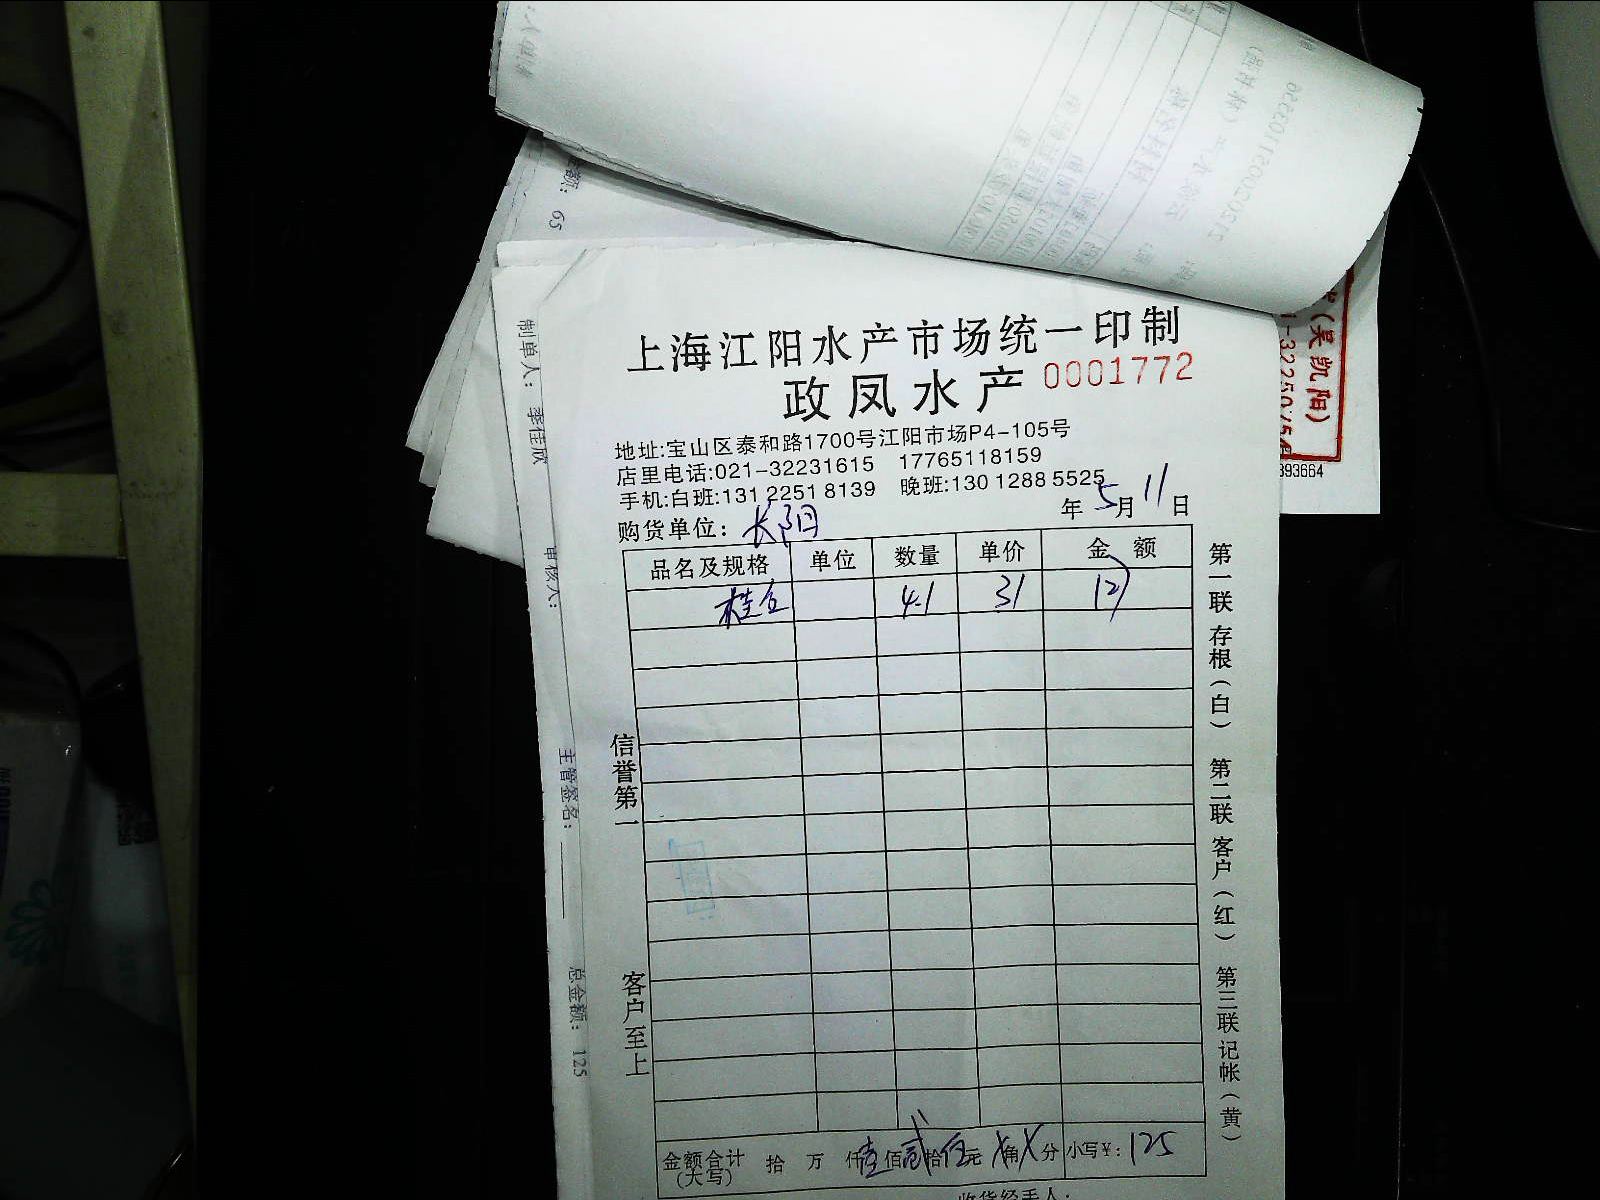 额：65
上海江阳水产市场统一印制
政凤水产 0001772
地址:宝山区泰和路1700号江阳市场P4-105号
店里电话:021-32231615 17765118159
手机:白班:131 2251 8139 晚班:130 1288 5525
年 5 月 11 日
购货单位：长阳
品名及规格 单位 数量 单价 金额
桂鱼 4.1 31 127
金额合计(大写) 拾 万 仟 壹 佰 贰 拾 伍 元 X 角 X 分 小写¥：125
收货经手人：
信誉第一
客户至上
第一联存根(白) 第二联客户(红) 第三联记帐(黄)
制单人：李佳欣
审核人：
主管签名：
总金额：125
(吴凯阳)
393664